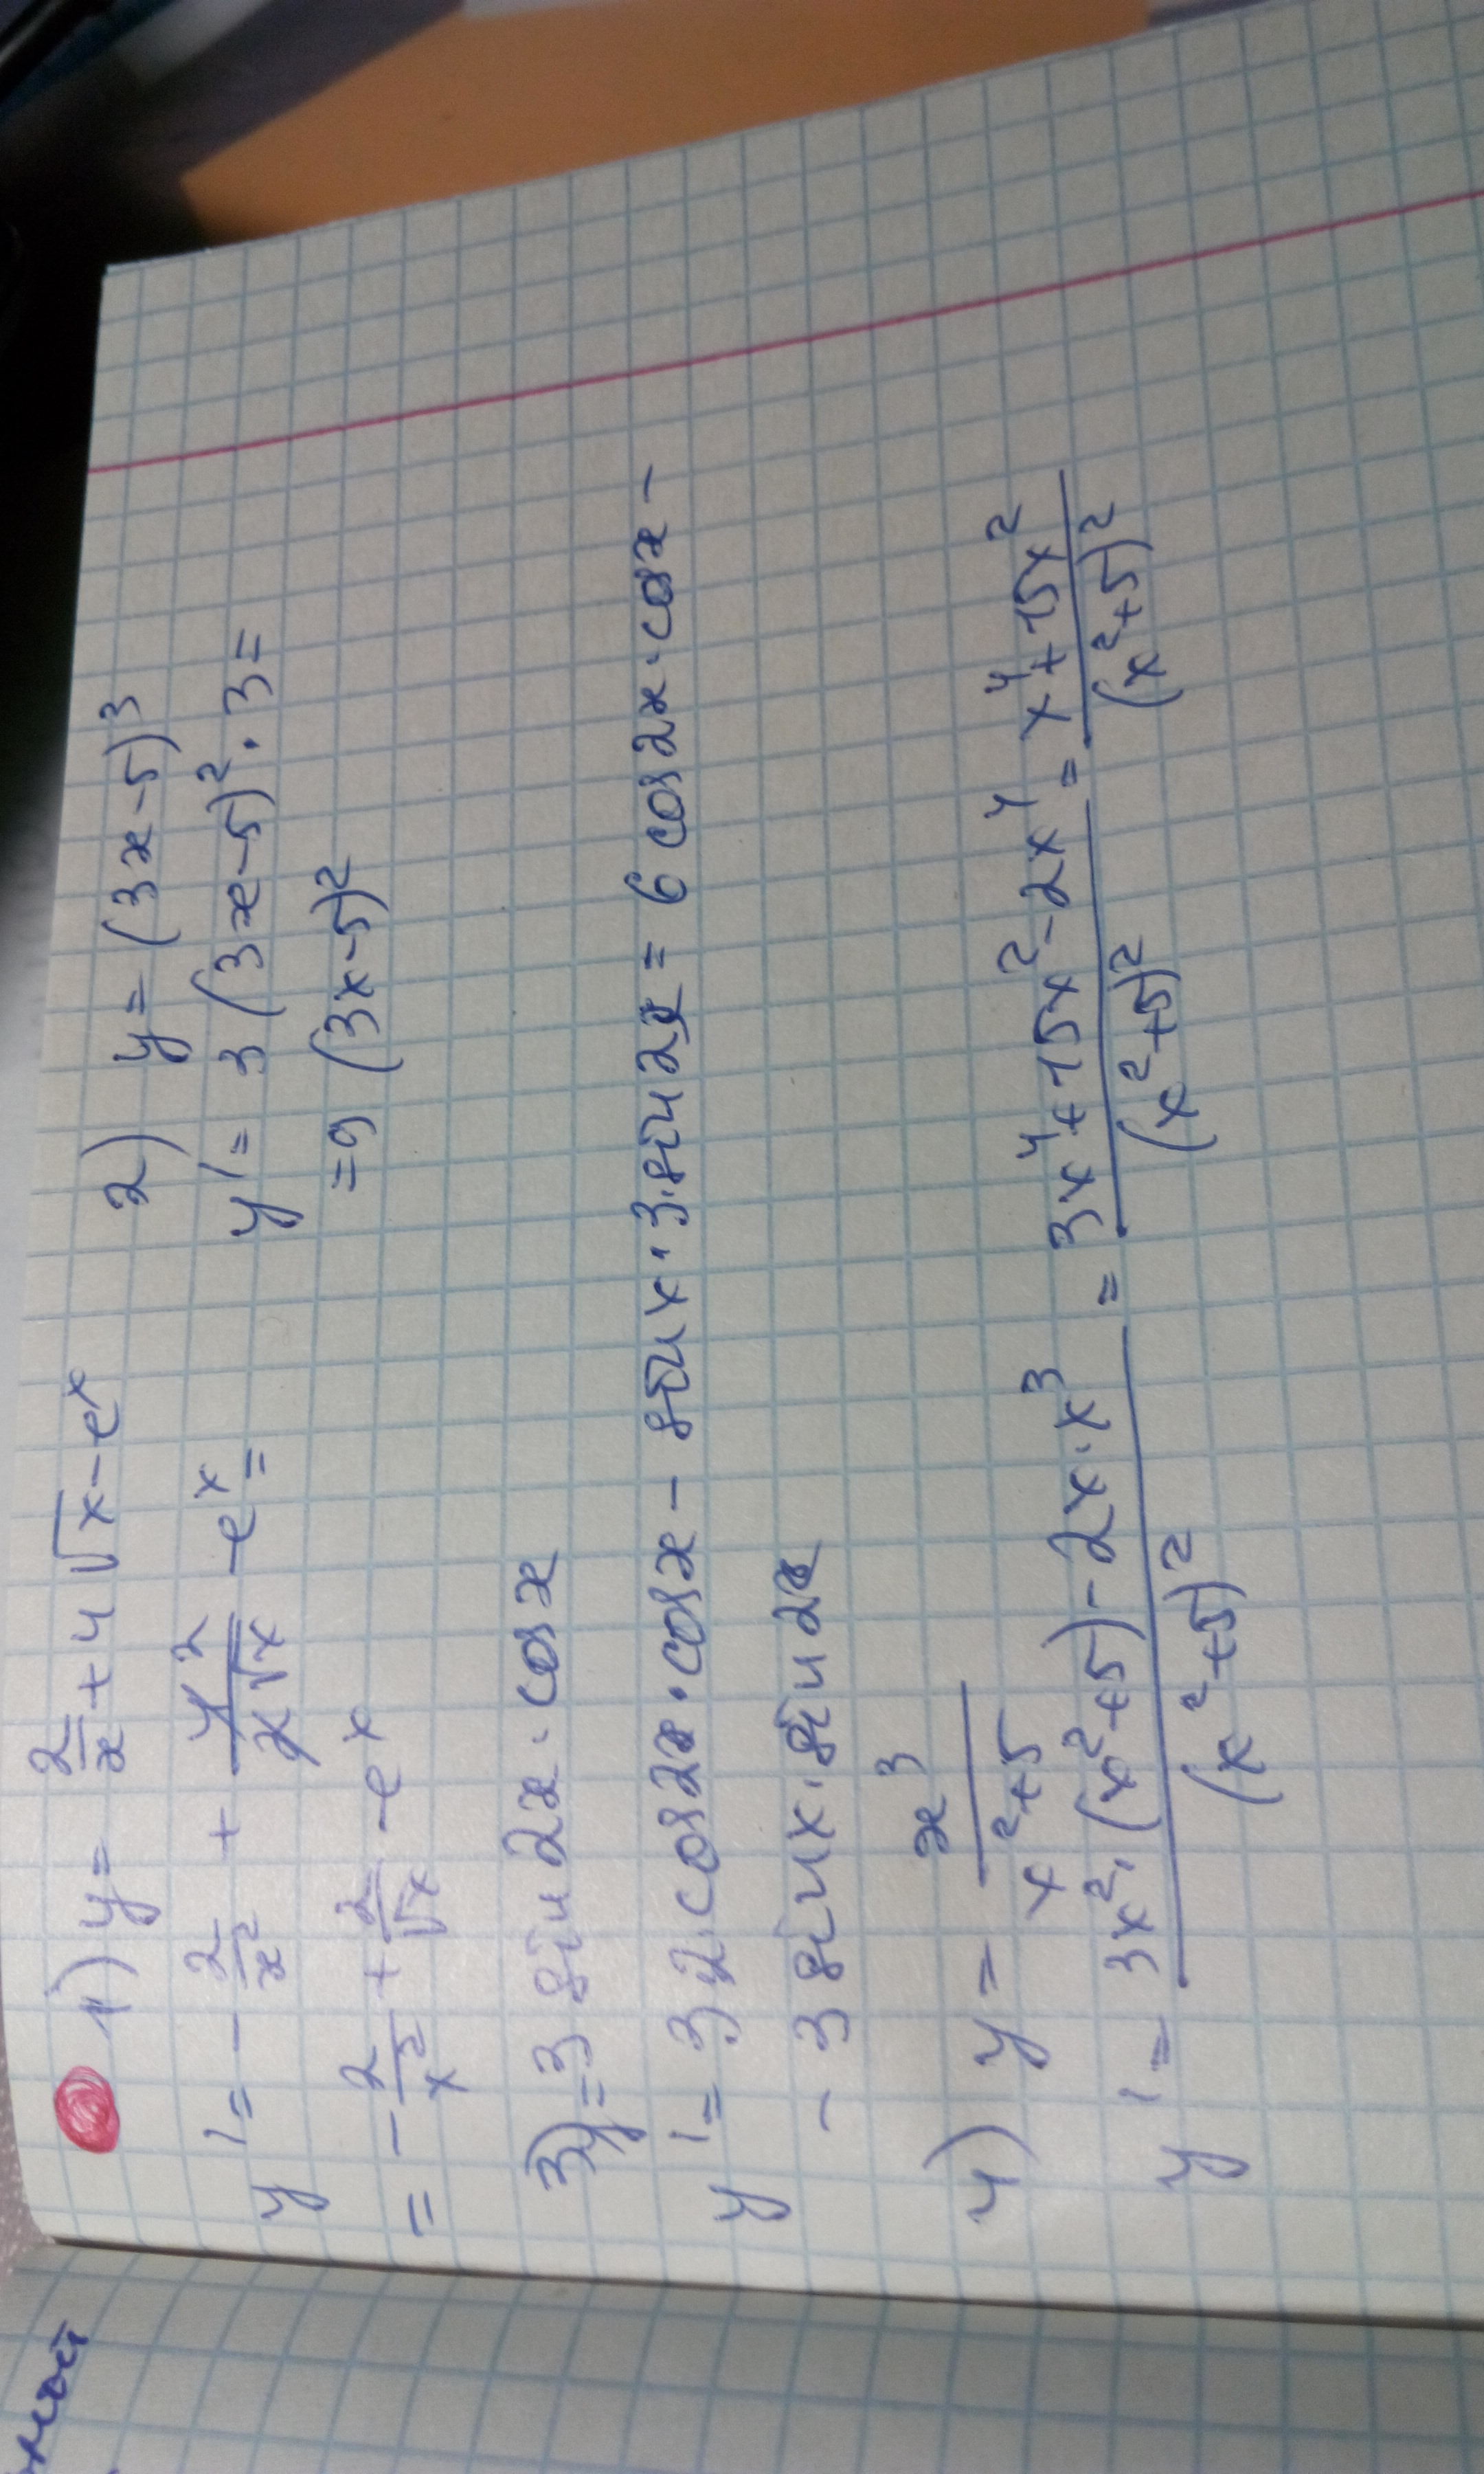 1) y = 2/x + 4√x - eˣ
y' = - 2/x² + 4̸ 2/2̸√x - eˣ =
= - 2/x² + 2/√x - eˣ
2) y = (3x - 5)³
y' = 3 (3x - 5)² · 3 =
= 9 (3x - 5)²
3) y = 3 sin 2x · cos x
y' = 3·2·cos 2x · cos x - sin x · 3·sin 2x = 6 cos 2x · cos x -
- 3 sin x · sin 2x
4) y = x³/(x² + 5)
y' = (3x² · (x² + 5) - 2x · x³)/(x² + 5)² = (3x⁴ + 15x² - 2x⁴)/(x² + 5)² = (x⁴ + 15x²)/(x² + 5)²